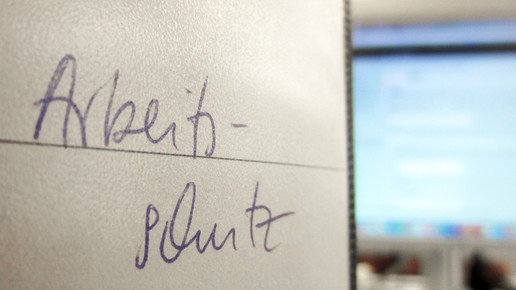 Arbeits-
schutz